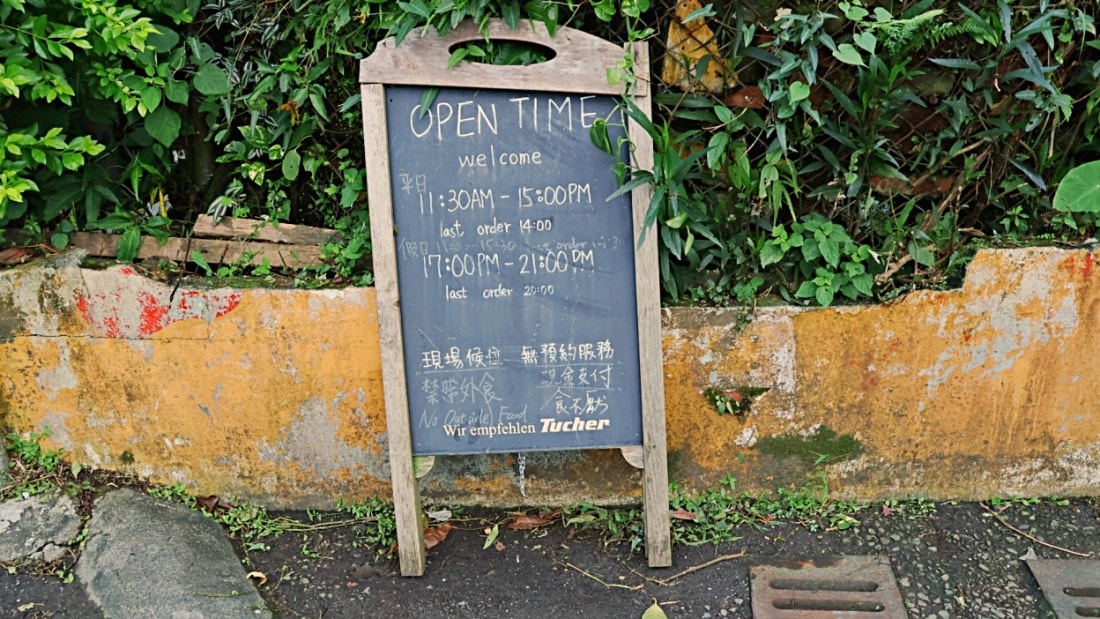 OPEN TIME
welcome
平日
11:30AM - 15:00PM
last order 14:00
假日 11:00 - 15:30
17:00PM - 21:00PM
last order 20:00
現場候位 無預約服務
禁帶外食
現金支付
No Outside Food
Wir empfehlen Tucher